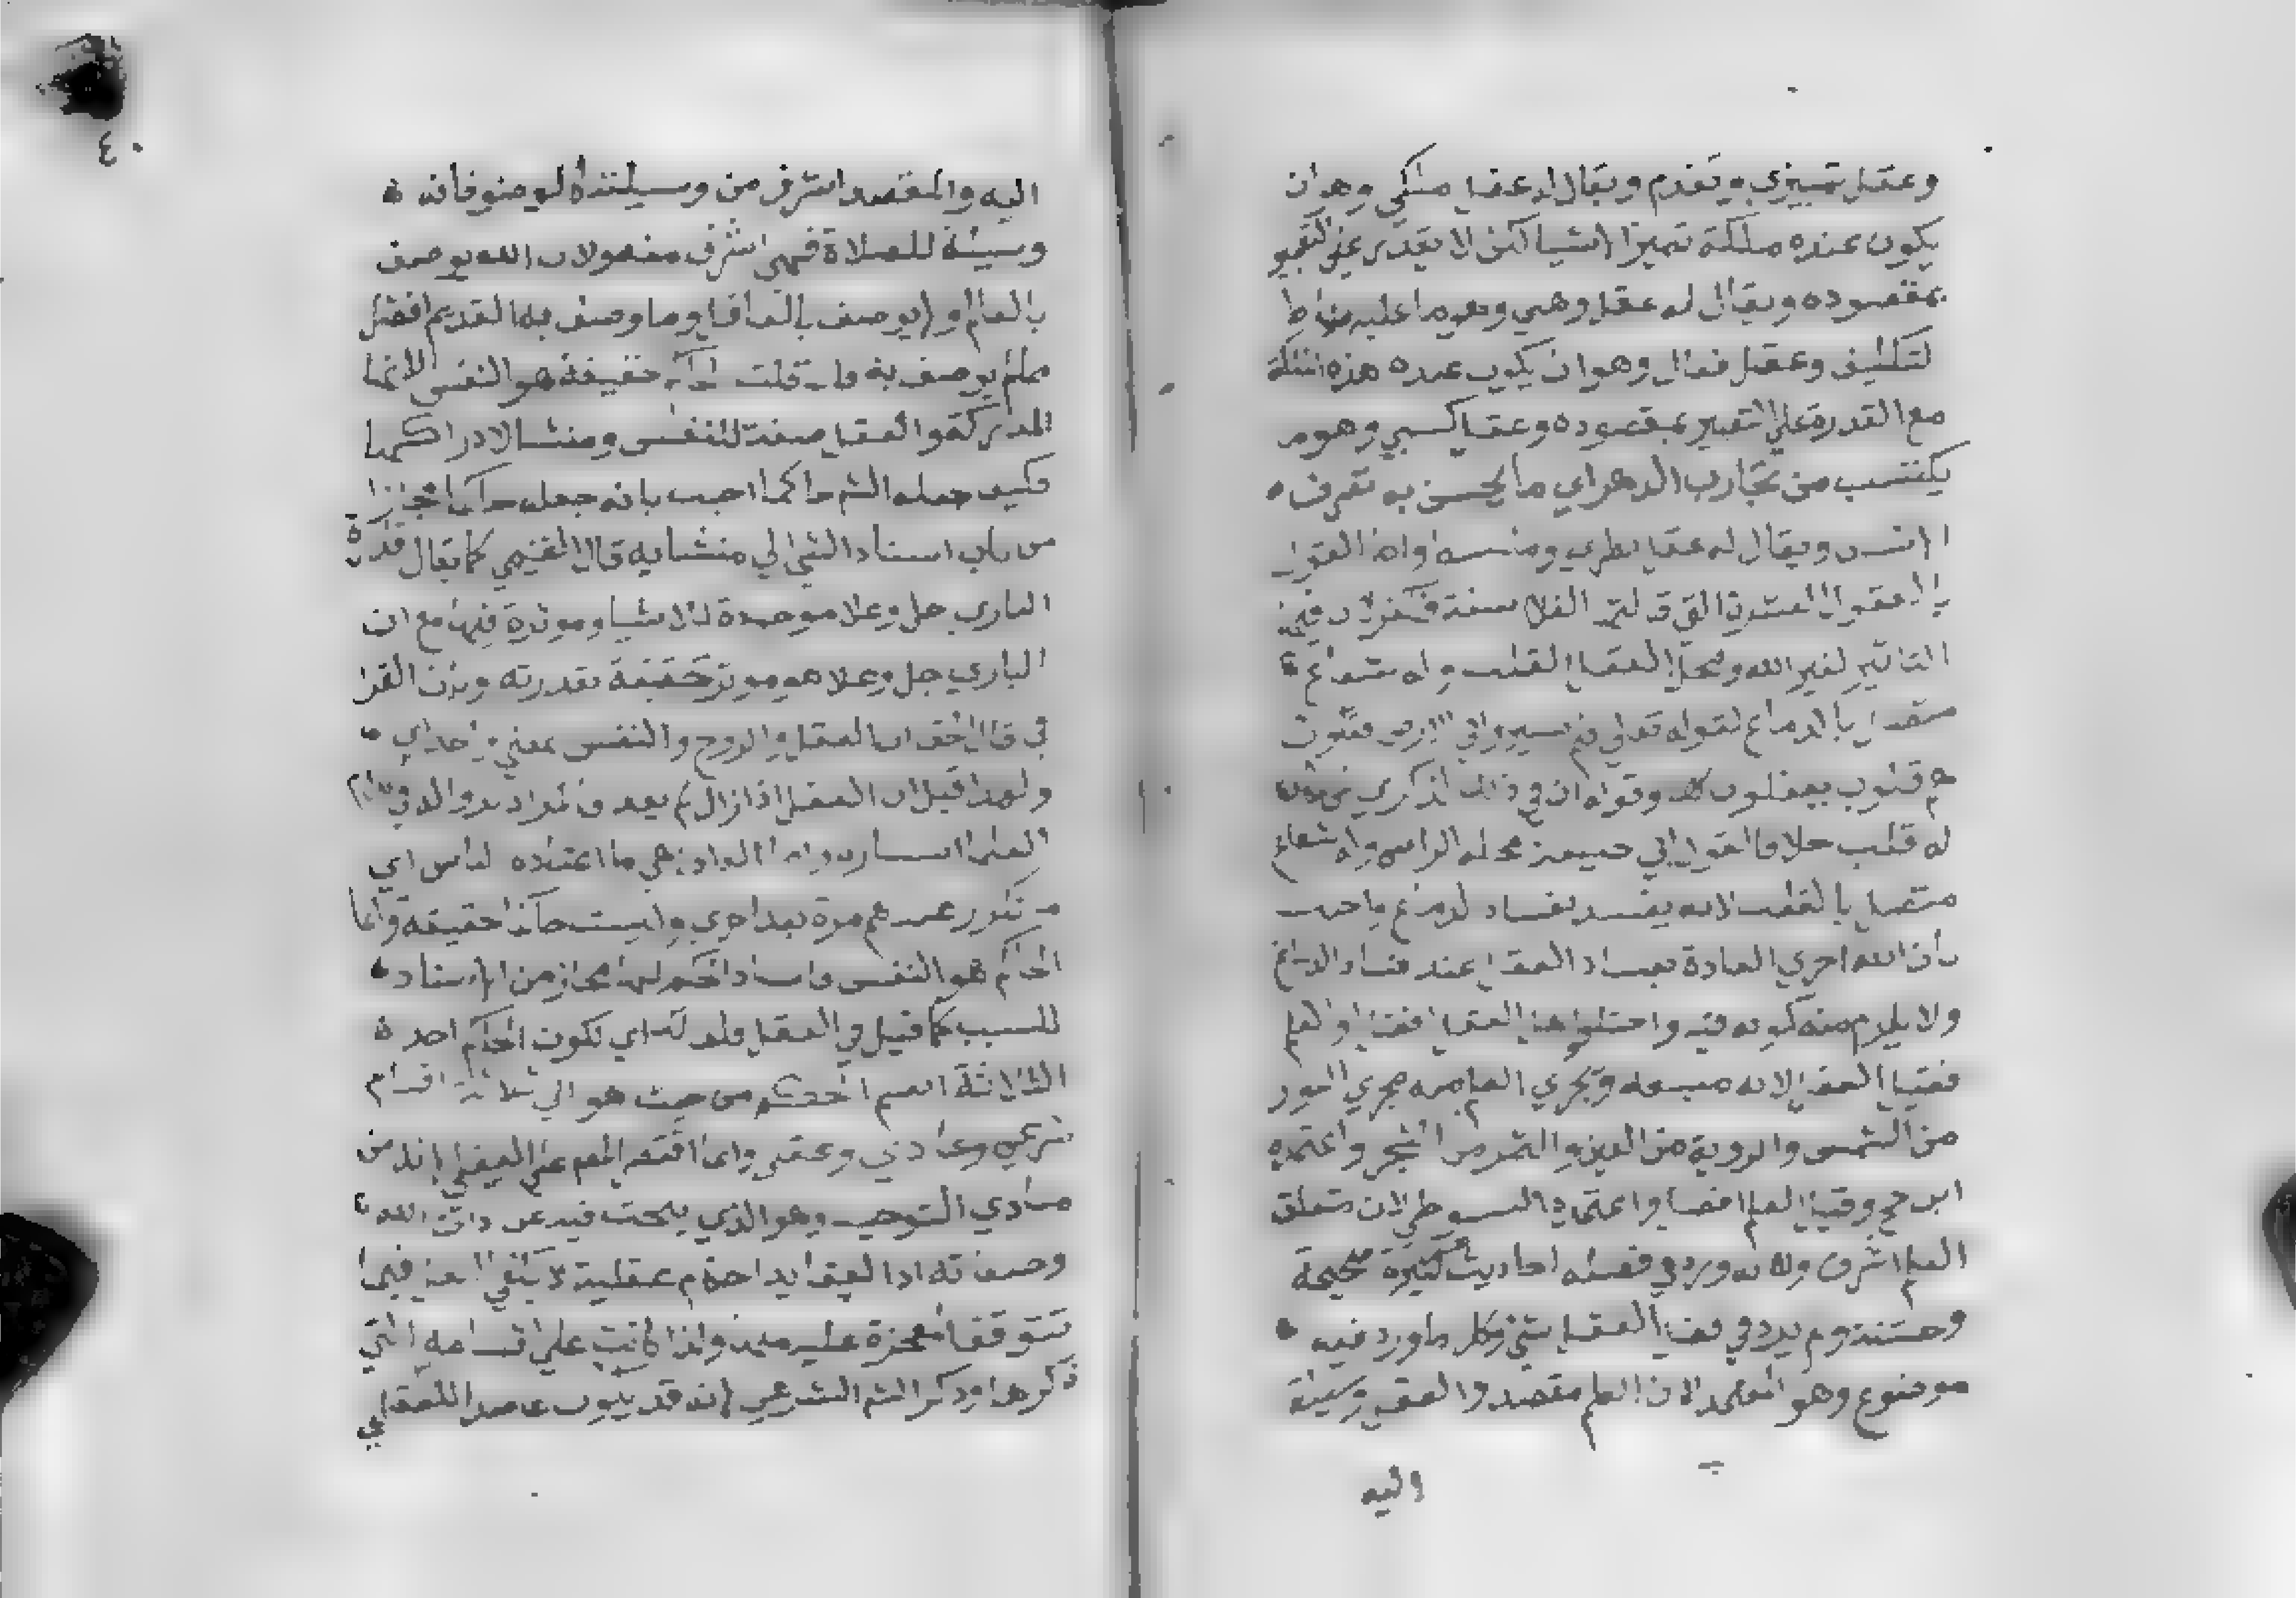 وعقل تمييزي وتقدم ويقال له عقل ملكي وهو ان
يكون عنده ملكة تميز الاشيا لكن لا يقدر على التعبير
بمقصوده ويقال له عقل وهبي وهو ما عليه مناط
التكليف وعقل فعال وهو ان يكون عنده هذه الملكة
مع القدرة على التعبير بمقصوده وعقل كسبي وهو ما
يكتسب من تجارب الدهر اي ما يحسن به تصرف
الانسان ويقال له عقل نظري واما القول
بالعقول العشرة الفلاسفة فكفر لان فيه
التاثير لغير الله ومحل العقل القلب وله شعاع
متصل بالدماغ لقوله تعالى افلم يسيروا في الارض فتكون
لهم قلوب يعقلون بها وقوله ان في ذلك لذكرى لمن كان
له قلب خلافا لقول ابي حنيفة محله الراس وله شعاع
متصل بالقلب لانه يفسد بفساد الدماغ واجيب
بان الله اجرى العادة بفساد العقل عند فساد الدماغ
ولا يلزم منه كونه فيه واختلف هل العقل افضل او العلم
فقيل العقل لانه منبعه ويجري العلم منه مجرى النور
من الشمس والروية من العين والثمر من الشجر واعتمده
ابن حجر وقيل العلم افضل واعتمده السيوطي لان متعلق
العلم اشرف ولانه ورد في فضله احاديث كثيرة صحيحة
وحسنة ولم يرد في فضل العقل شي وكل ما ورد فيه
موضوع وهو المعتمد لان العلم مقصد والعقل وسيلة
اليه
٤٠
اليه والمقصد اشرف من وسيلته الوضو فانه
وسيلة للصلاة فهي اشرف منه ولان الله يوصف
بالعالم ولا يوصف بالعاقل وما وصف به القديم افضل
مما لم يوصف به فان قلت الحاكم حقيقة هو النفس لانها
المدركة والعقل صفة للنفس ومنشا لادراكها
فكيف جعله الشم حاكما اجيب بانه جعله حاكما مجازا
من باب اسناد الشي الى منشايه قال الغنيمي كما يقال قدرة
الباري جل وعلا موجدة للاشيا وموثرة فيها مع ان
الباري جل وعلا هو موثر حقيقة بقدرته
في قال الحق ان العقل والروح والنفس بمعنى واحد اي
ولهذا قيل ان العقل اذا زال لم يعد
العلم العادة هي ما اعتاده الناس اي
ما تكرر عندهم مرة بعد اخرى وليست حاكما حقيقة وانما
الحاكم هو النفس واسناد الحكم لها مجاز من الاسناد
للسبب كما قيل في العقل ولذلك اي لكون الحاكم احد
الثلاثة انقسم الحكم من حيث هو الى ثلاثة اقسام
شرعي وعادي وعقلي وانما اقتصر المص على العقلي لانه من
مبادي التوحيد وهو الذي يبحث فيه عن ذات الله
وصفاته اذ العقايد احكام عقلية لا يكفي النقل فيما
تتوقف المعجزة عليه منها ولذا كانت على اقسامه التي
ذكرها وذكر الشم الشرعي لانه قد يكون عاضدا للعقلي